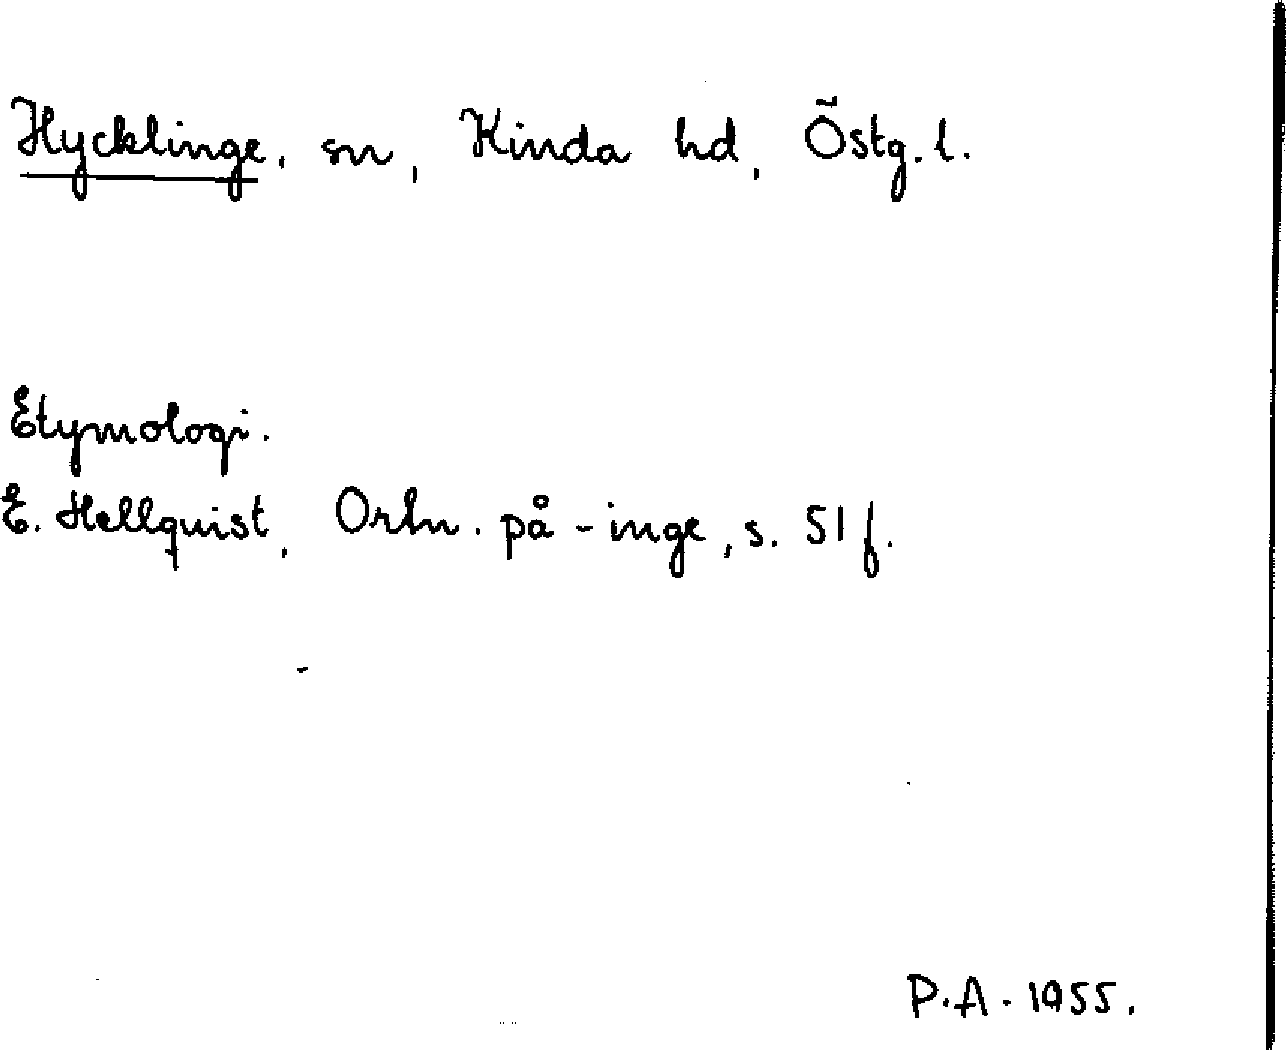 Hycklinge, sn, Kinda hd, Östg. l.
Etymologi.
E. Hellquist, Ortn. på -inge, s. 51 f.
P.A. 1955.